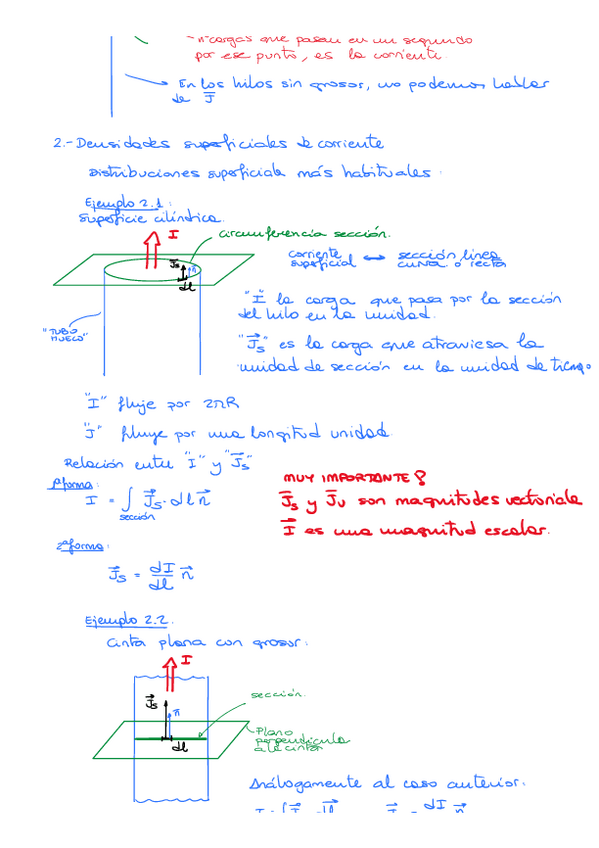 "nº cargas que pasan en un segundo
por ese punto, es la corriente.
En los hilos sin grosor, no podemos hablar
de J
2.- Densidades superficiales de corriente
Distribuciones superficiale más habituales.
Ejemplo 2.1:
Superficie cilíndrica.
I
circumferencia sección.
Js
n
dl
corriente superficial ↔ sección línea curva o recta
"TUBO HUECO"
"I" la carga que pasa por la sección
del hilo en la unidad.
"Js" es la carga que atraviesa la
unidad de sección en la unidad de tiempo
"I" fluje por 2πR
"J" fluye por una longitud unidad.
Relación entre "I" y "Js"
1ª forma:
I = ∫ Js · dl n
sección
MUY IMPORTANTE!
Js y Jv son magnitudes vectoriale
I es una magnitud escalar.
2ª forma:
Js = dI/dl n
Ejemplo 2.2.
Cinta plana con grosor:
I
Js
n
dl
sección.
Plano
perpendicula
a la cinta
Análogamente al caso anterior: